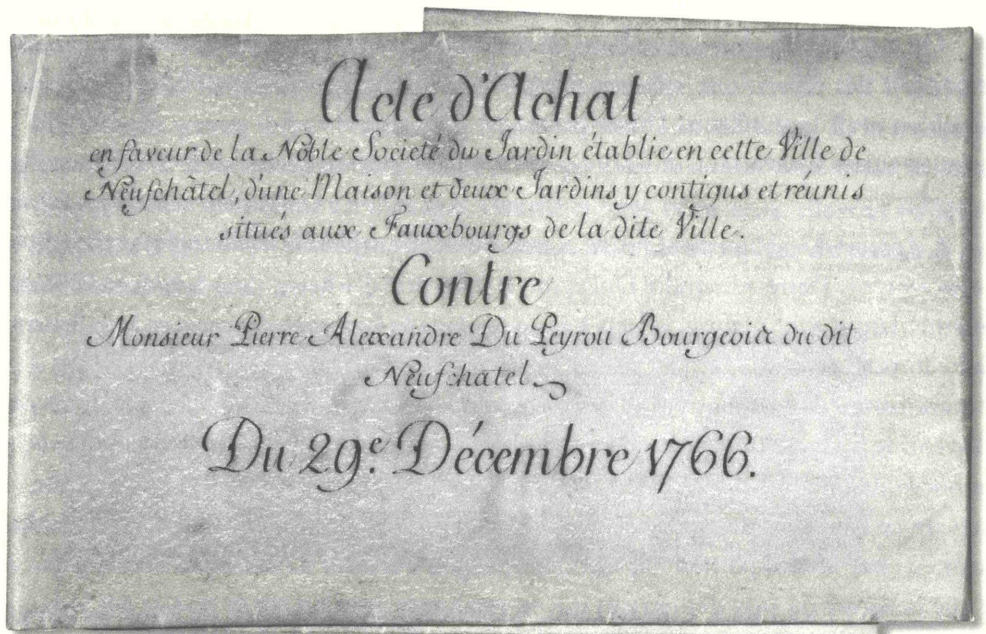 Acte d'Achat
en faveur de la Noble Societé du Jardin établie en cette Ville de
Neufchâtel, d'une Maison et deux Jardins y contigus et réunis
situés aux Fauxbourgs de la dite Ville.
Contre
Monsieur Pierre Alexandre Du Peyrou Bourgeois du dit
Neufchatel
Du 29.e Décembre 1766.